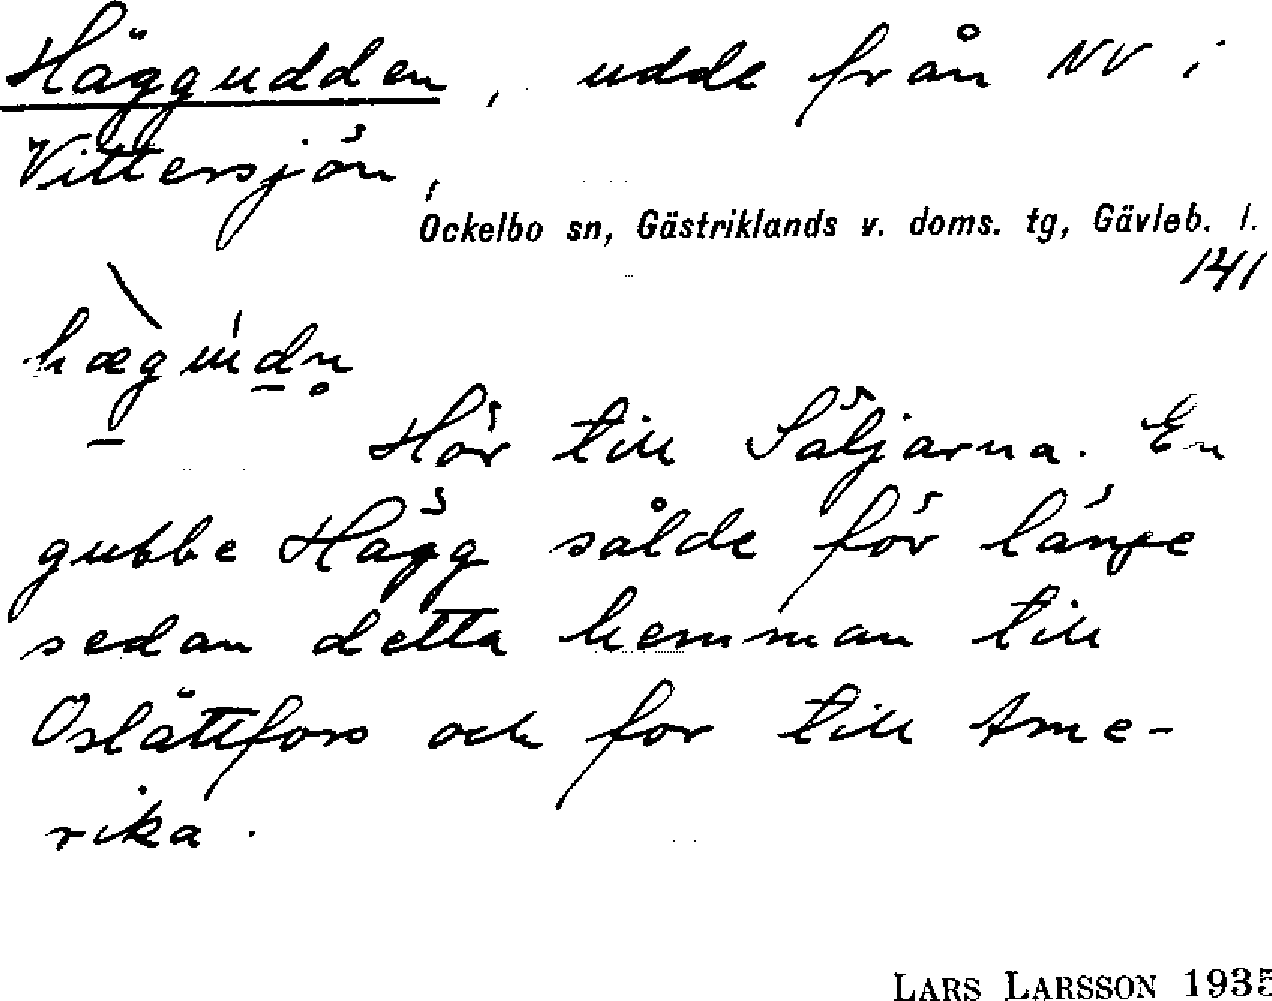 Häggudden, udde från NV i
Vittersjön,
Ockelbo sn, Gästriklands v. doms. tg, Gävleb. l.
141
Hör till Säljarna. En
gubbe Hägg sålde för länge
sedan detta hemman till
Oslättfors och for till Ame-
rika.
LARS LARSSON 1935